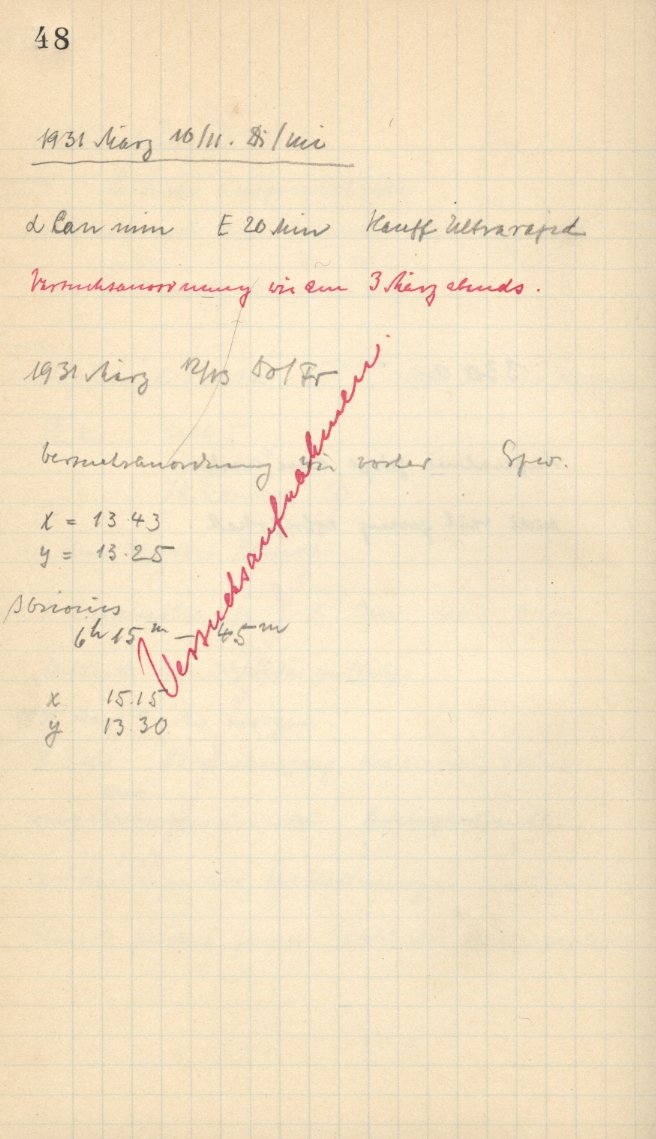 48
1931 März 10/11. Di/Mi
α Can min E 20 Min Hauff Ultrarapid
Versuchsanordnung wie am 3 März abends.
1931 März 12/13 Do/Fr
Versuchsanordnung wie vorher
x = 13.43
y = 13.25
6h 15m – 45m
x 15.15
y 13.30
Versuchsaufnahmen